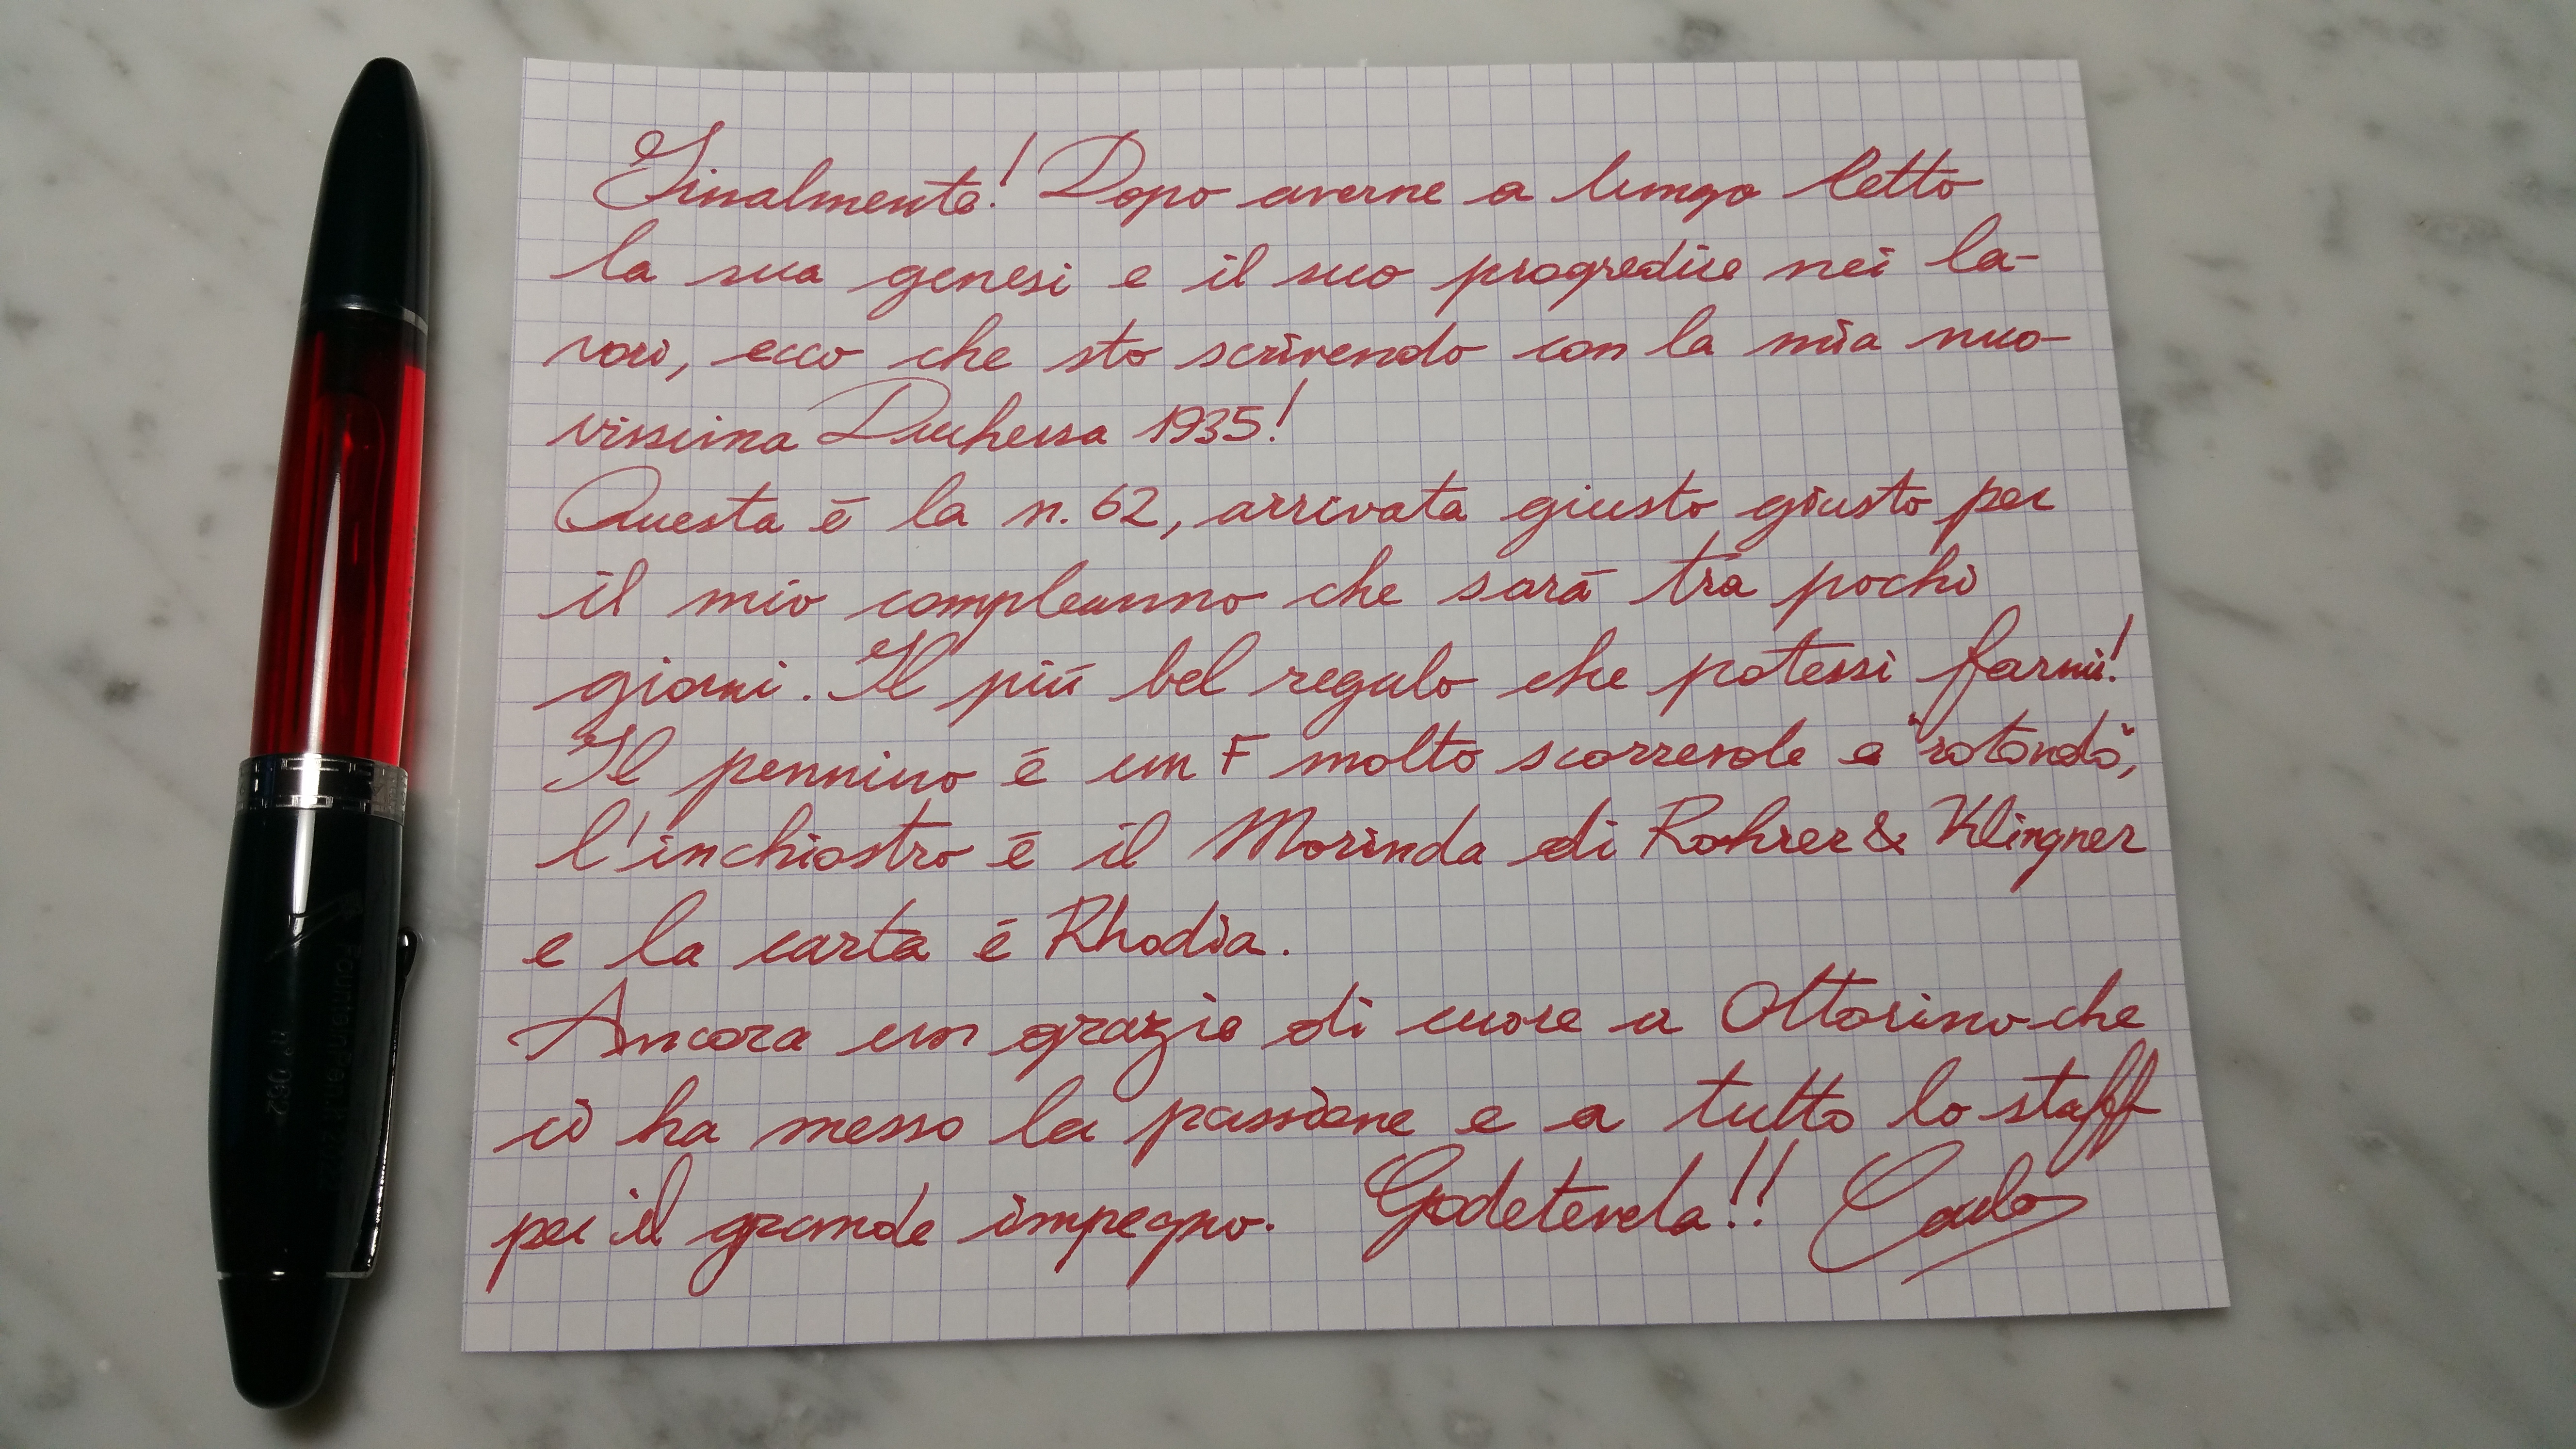 Finalmente! Dopo averne a lungo letto
la sua genesi e il suo progredire nei la-
vori, ecco che sto scrivendo con la mia nuo-
vissima Duchessa 1935!
Questa è la n. 62, arrivata giusto giusto per
il mio compleanno che sarà tra pochi
giorni. Il più bel regalo che potessi farmi!
Il pennino è un F molto scorrevole e "rotondo",
l'inchiostro è il Morinda di Rohrer & Klingner
e la carta è Rhodia.
Ancora un grazie di cuore a Ottorino che
ci ha messo la passione e a tutto lo staff
per il grande impegno. Godetevela!! Carlo
FountainPen.it
n° 062